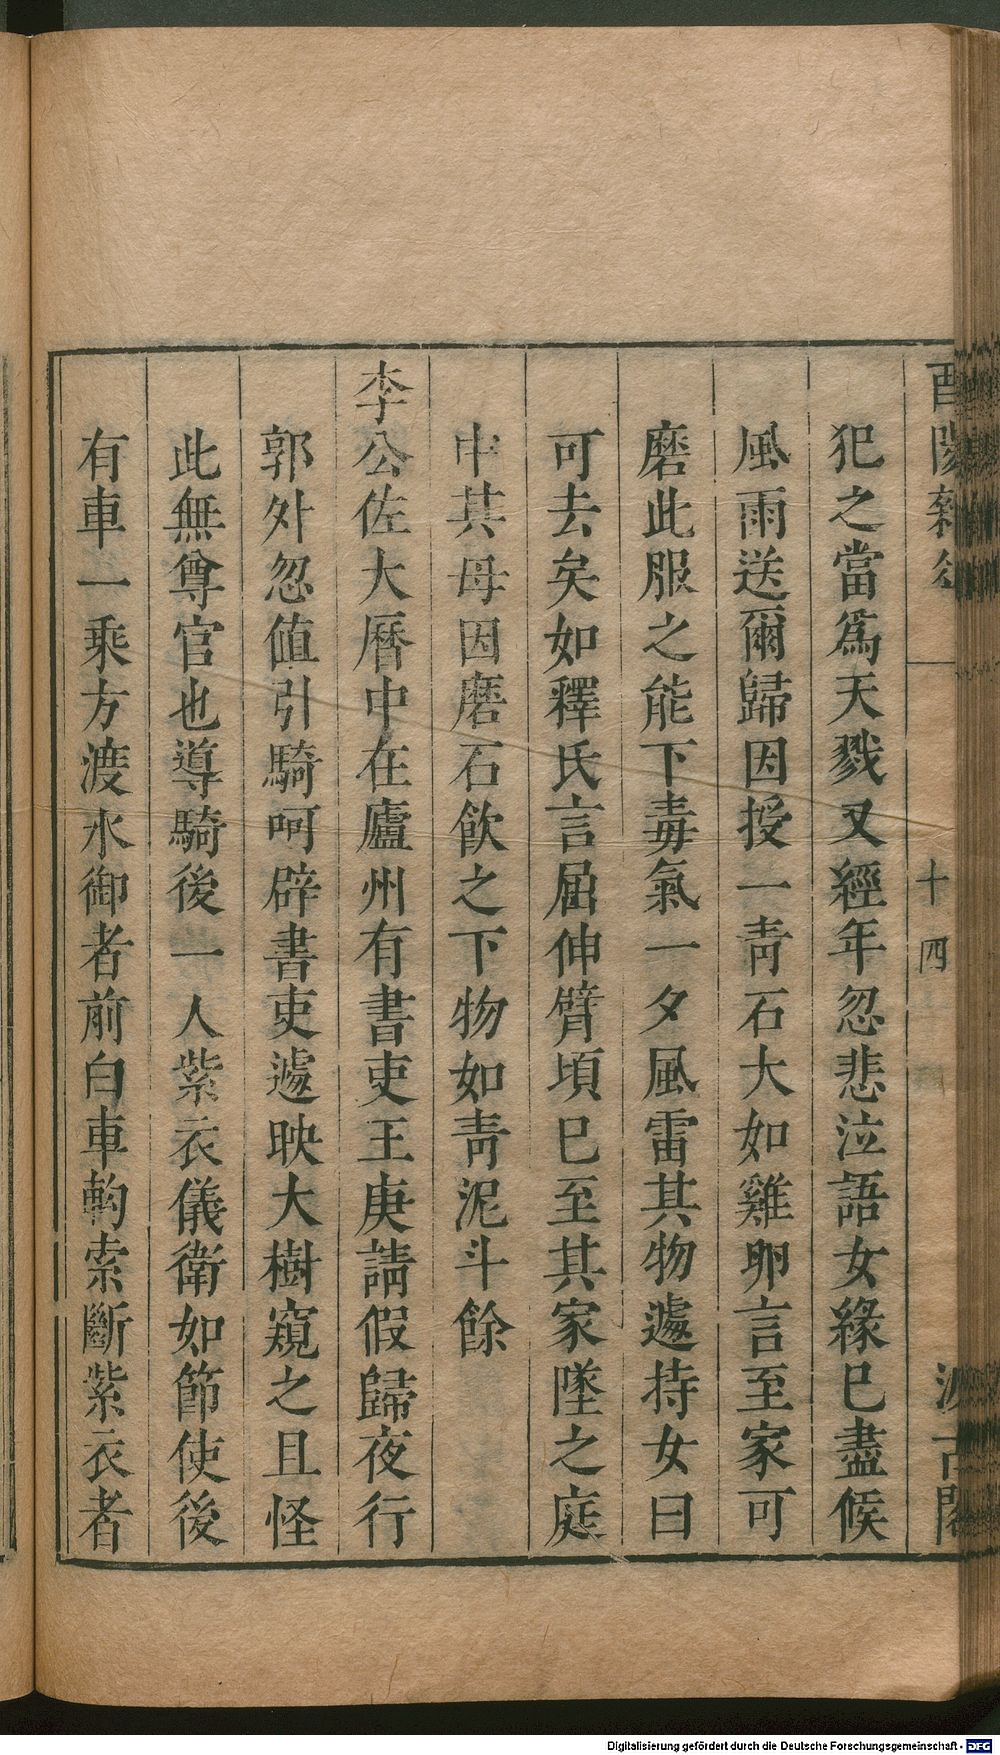 酉陽雜俎
十四
汲古閣
犯之當爲天戮又經年忽悲泣語女緣已盡候
風雨送爾歸因授一靑石大如雞卵言至家可
磨此服之能下毒氣一夕風雷其物遽持女曰
可去矣如釋氏言屈伸臂頃已至其家墜之庭
中其母因磨石飮之下物如靑泥斗餘
李公佐大曆中在廬州有書吏王庚請假歸夜行
郭外忽値引騎呵辟書吏遽映大樹窺之且怪
此無尊官也導騎後一人紫衣儀衛如節使後
有車一乘方渡水御者前白車軥索斷紫衣者
Digitalisierung gefördert durch die Deutsche Forschungsgemeinschaft - DFG